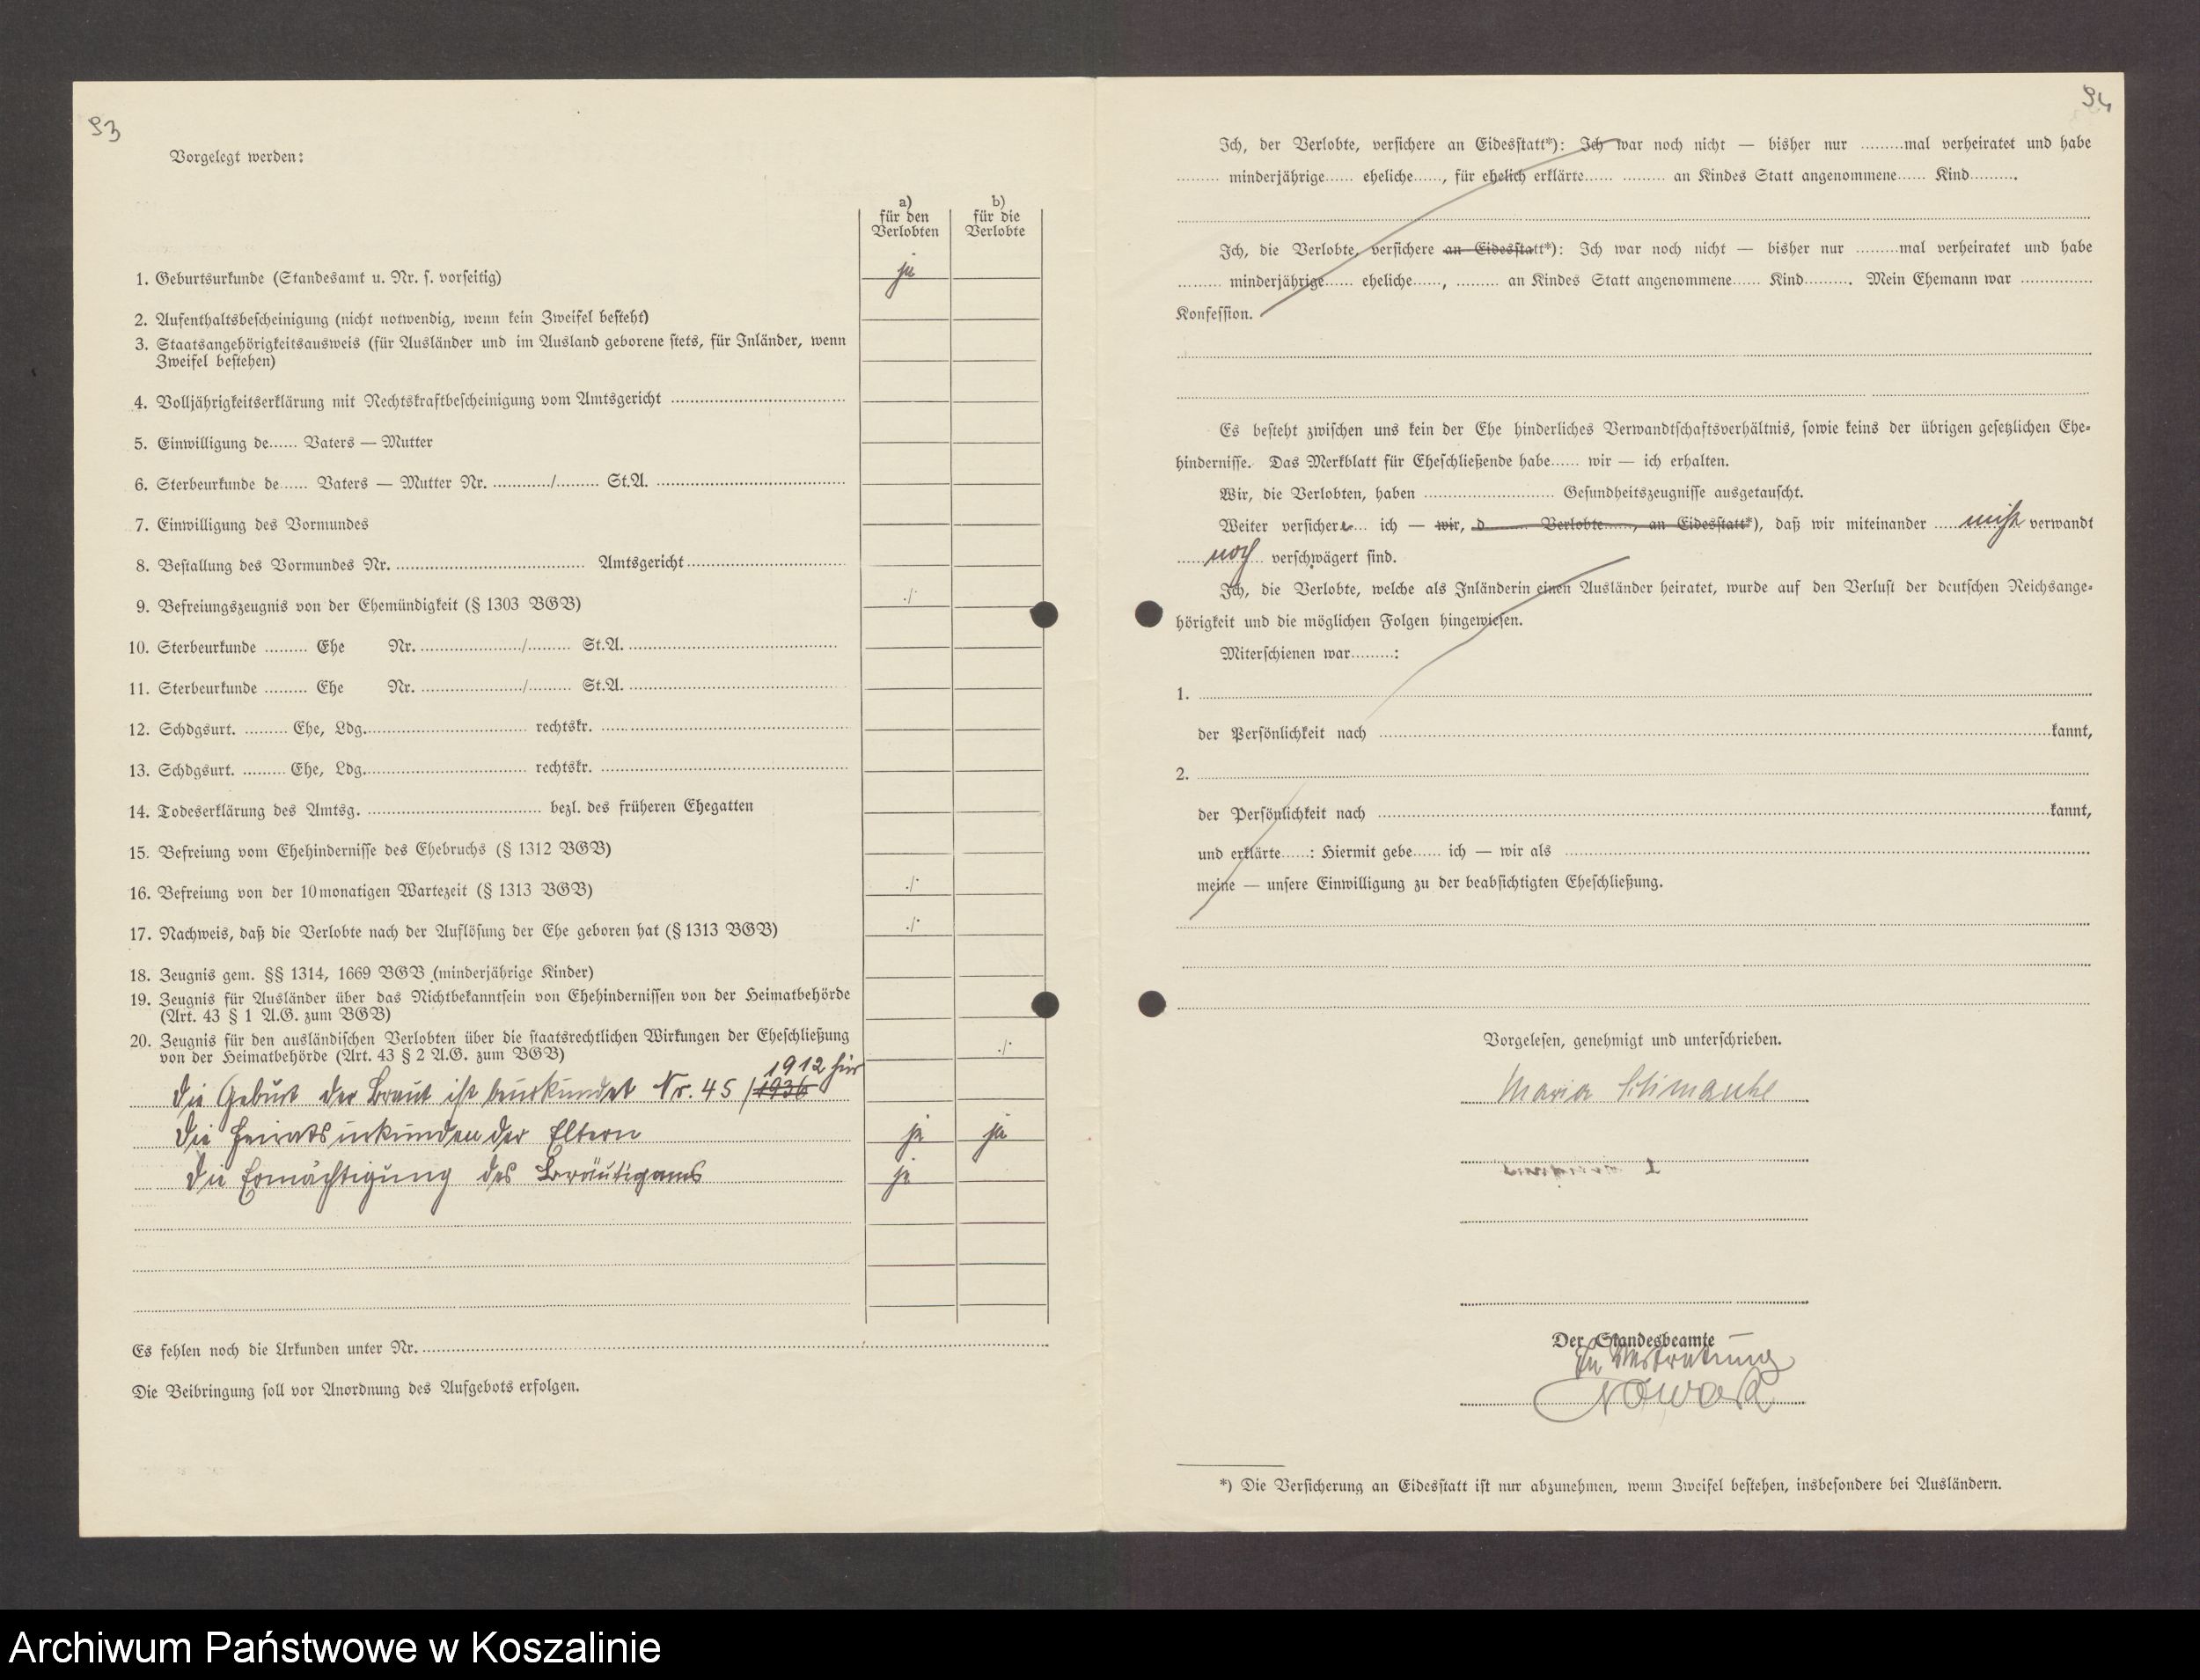 93
Vorgelegt werden:
a) für den Verlobten
b) für die Verlobte
1. Geburtsurkunde (Standesamt u. Nr. s. vorseitig) ja
2. Aufenthaltsbescheinigung (nicht notwendig, wenn kein Zweifel besteht)
3. Staatsangehörigkeitsausweis (für Ausländer und im Ausland geborene stets, für Inländer, wenn
Zweifel bestehen)
4. Volljährigkeitserklärung mit Rechtskraftbescheinigung vom Amtsgericht ..........
5. Einwilligung de...... Vaters — Mutter
6. Sterbeurkunde de...... Vaters — Mutter Nr. ............/......... St.A. ..........
7. Einwilligung des Vormundes
8. Bestallung des Vormundes Nr. .......... Amtsgericht ..........
9. Befreiungszeugnis von der Ehemündigkeit (§ 1303 BGB) ./.
10. Sterbeurkunde ......... Ehe Nr. ........../......... St.A. ..........
11. Sterbeurkunde ......... Ehe Nr. ........../......... St.A. ..........
12. Schdgsurt. ......... Ehe, Ldg. .......... rechtskr. ..........
13. Schdgsurt. ......... Ehe, Ldg. .......... rechtskr. ..........
14. Todeserklärung des Amtsg. .......... bezl. des früheren Ehegatten
15. Befreiung vom Ehehindernisse des Ehebruchs (§ 1312 BGB)
16. Befreiung von der 10monatigen Wartezeit (§ 1313 BGB) ./.
17. Nachweis, daß die Verlobte nach der Auflösung der Ehe geboren hat (§ 1313 BGB) ./.
18. Zeugnis gem. §§ 1314, 1669 BGB (minderjährige Kinder)
19. Zeugnis für Ausländer über das Nichtbekanntsein von Ehehindernissen von der Heimatbehörde
(Art. 43 § 1 A.G. zum BGB)
20. Zeugnis für den ausländischen Verlobten über die staatsrechtlichen Wirkungen der Eheschließung
von der Heimatbehörde (Art. 43 § 2 A.G. zum BGB) ./.
1912 hier
die Geburt der Braut ist beurkundet Nr. 45/1936
die Heiratsurkunden der Eltern ja ja
die Ermächtigung des Bräutigams ja
Es fehlen noch die Urkunden unter Nr. ..........
Die Beibringung soll vor Anordnung des Aufgebots erfolgen.
94
Ich, der Verlobte, versichere an Eidesstatt*): Ich war noch nicht — bisher nur .........mal verheiratet und habe
......... minderjährige...... eheliche......, für ehelich erklärte...... ......... an Kindes Statt angenommene...... Kind..........
Ich, die Verlobte, versichere an Eidesstatt*): Ich war noch nicht — bisher nur .........mal verheiratet und habe
......... minderjährige...... eheliche......, ......... an Kindes Statt angenommene...... Kind.......... Mein Ehemann war ..........
Konfession.
Es besteht zwischen uns kein der Ehe hinderliches Verwandtschaftsverhältnis, sowie keins der übrigen gesetzlichen Ehe-
hindernisse. Das Merkblatt für Eheschließende habe...... wir — ich erhalten.
Wir, die Verlobten, haben .......... Gesundheitszeugnisse ausgetauscht.
Weiter versichere... ich — wir, d......... Verlobte......, an Eidesstatt*), daß wir miteinander ..... nicht verwandt
..... noch ..... verschwägert sind.
Ich, die Verlobte, welche als Inländerin einen Ausländer heiratet, wurde auf den Verlust der deutschen Reichsange-
hörigkeit und die möglichen Folgen hingewiesen.
Miterschienen war.........:
1. ..........
der Persönlichkeit nach ..........kannt,
2. ..........
der Persönlichkeit nach ..........kannt,
und erklärte......: Hiermit gebe...... ich — wir als ..........
meine — unsere Einwilligung zu der beabsichtigten Eheschließung.
Vorgelesen, genehmigt und unterschrieben.
Maria
Der Standesbeamte
In Vertretung
Nowack
*) Die Versicherung an Eidesstatt ist nur abzunehmen, wenn Zweifel bestehen, insbesondere bei Ausländern.
Archiwum Państwowe w Koszalinie